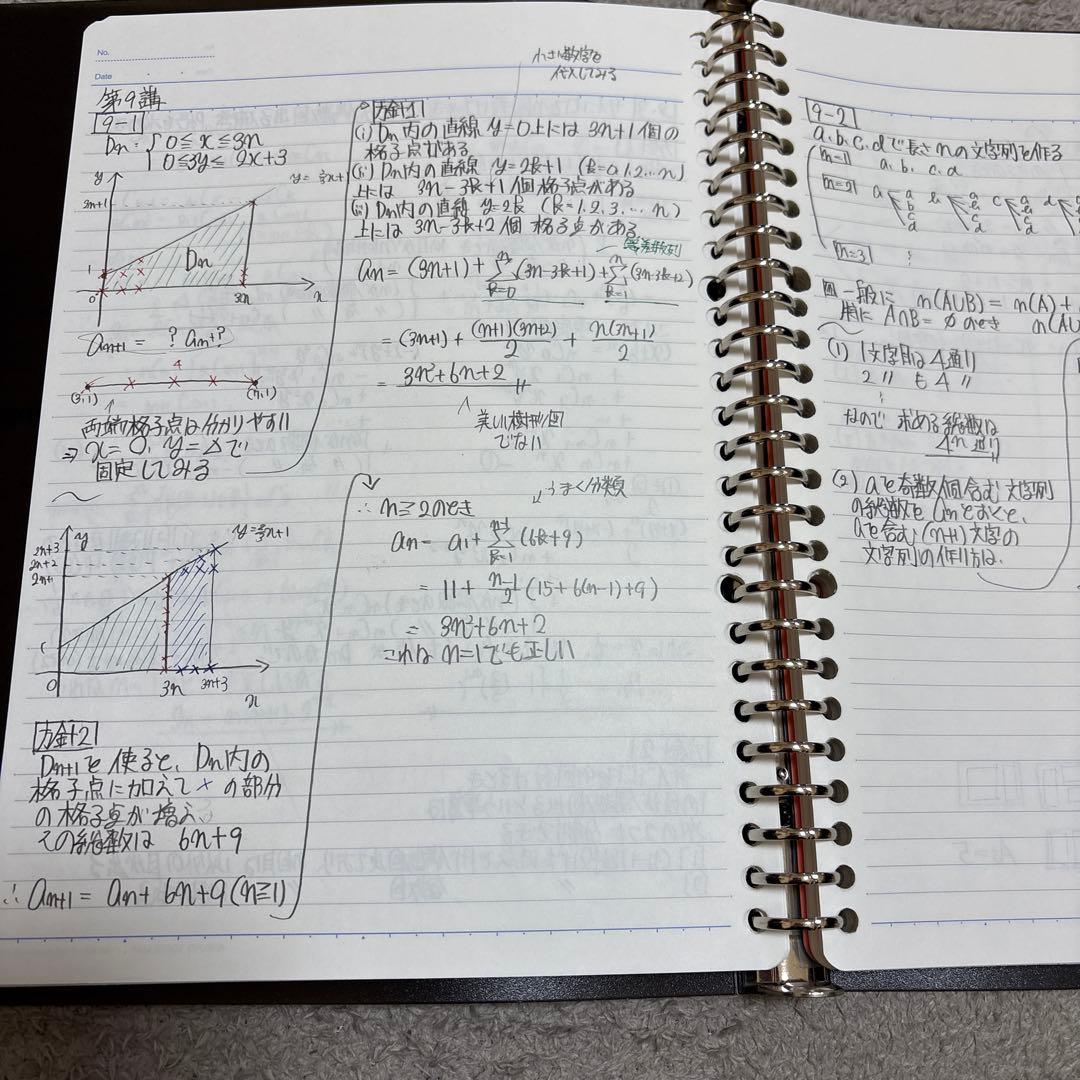 No.
Date
第9講
9-1
Dn: { 0≦x≦3n
0≦3y≦2x+3
y
2n+1
1
Dn
0
3n
x
an+1 = ? an+?
4
(n,1)
両端の格子点は分かりやすい
⇒ x=0, y=△で
固定してみる
y
y=⅔x+1
2n+3
2n+2
2n+1
1
0
3n
3n+3
x
方針2
Dn+1を使ると、Dn内の
格子点に加えて×の部分
の格子点が増え、
その総数は 6n+9
∴ an+1 = an + 6n+9 (n≧1)
小さい数字を
代入してみる
方針1
(i) Dn内の直線 y=0上には 3n+1個の
格子点がある
(ii) Dn内の直線 y=2k+1 (k=0,1,2…n)
上には 3n-3k+1個格子点がある
(iii) Dn内の直線 y=2k (k=1,2,3,…n)
上には 3n-3k+2個 格子点がある
等差数列
an = (3n+1) + Σ[k=0, n](3n-3k+1) + Σ[k=1, n](3n-3k+2)
= (3n+1) + (n+1)(3n+2)/2 + n(3n+1)/2
= 3n²+6n+2
美しい樹形図
でない
うまく分類
∴ n≧2のとき
an = a1 + Σ[k=1, n-1](6k+9)
= 11 + (n-1)/2 (15+6(n-1)+9)
= 3n²+6n+2
これは n=1でも正しい
9-2
a,b,c,dで長さnの文字列を作る
n=1 a, b, c, d
n=2 a a b c d b c a b c d d
n=3 ⋮
一般に n(A∪B) = n(A) +
A∩B = ∅ のとき n(A∪
(1) 1文字目は4通り
2 〃 も4 〃
⋮
なので 求める総数は
4ⁿ通り
(2) aを奇数個含む文字列
の総数を anとおくと、
aを含む(n+1)文字の
文字列の作り方は、